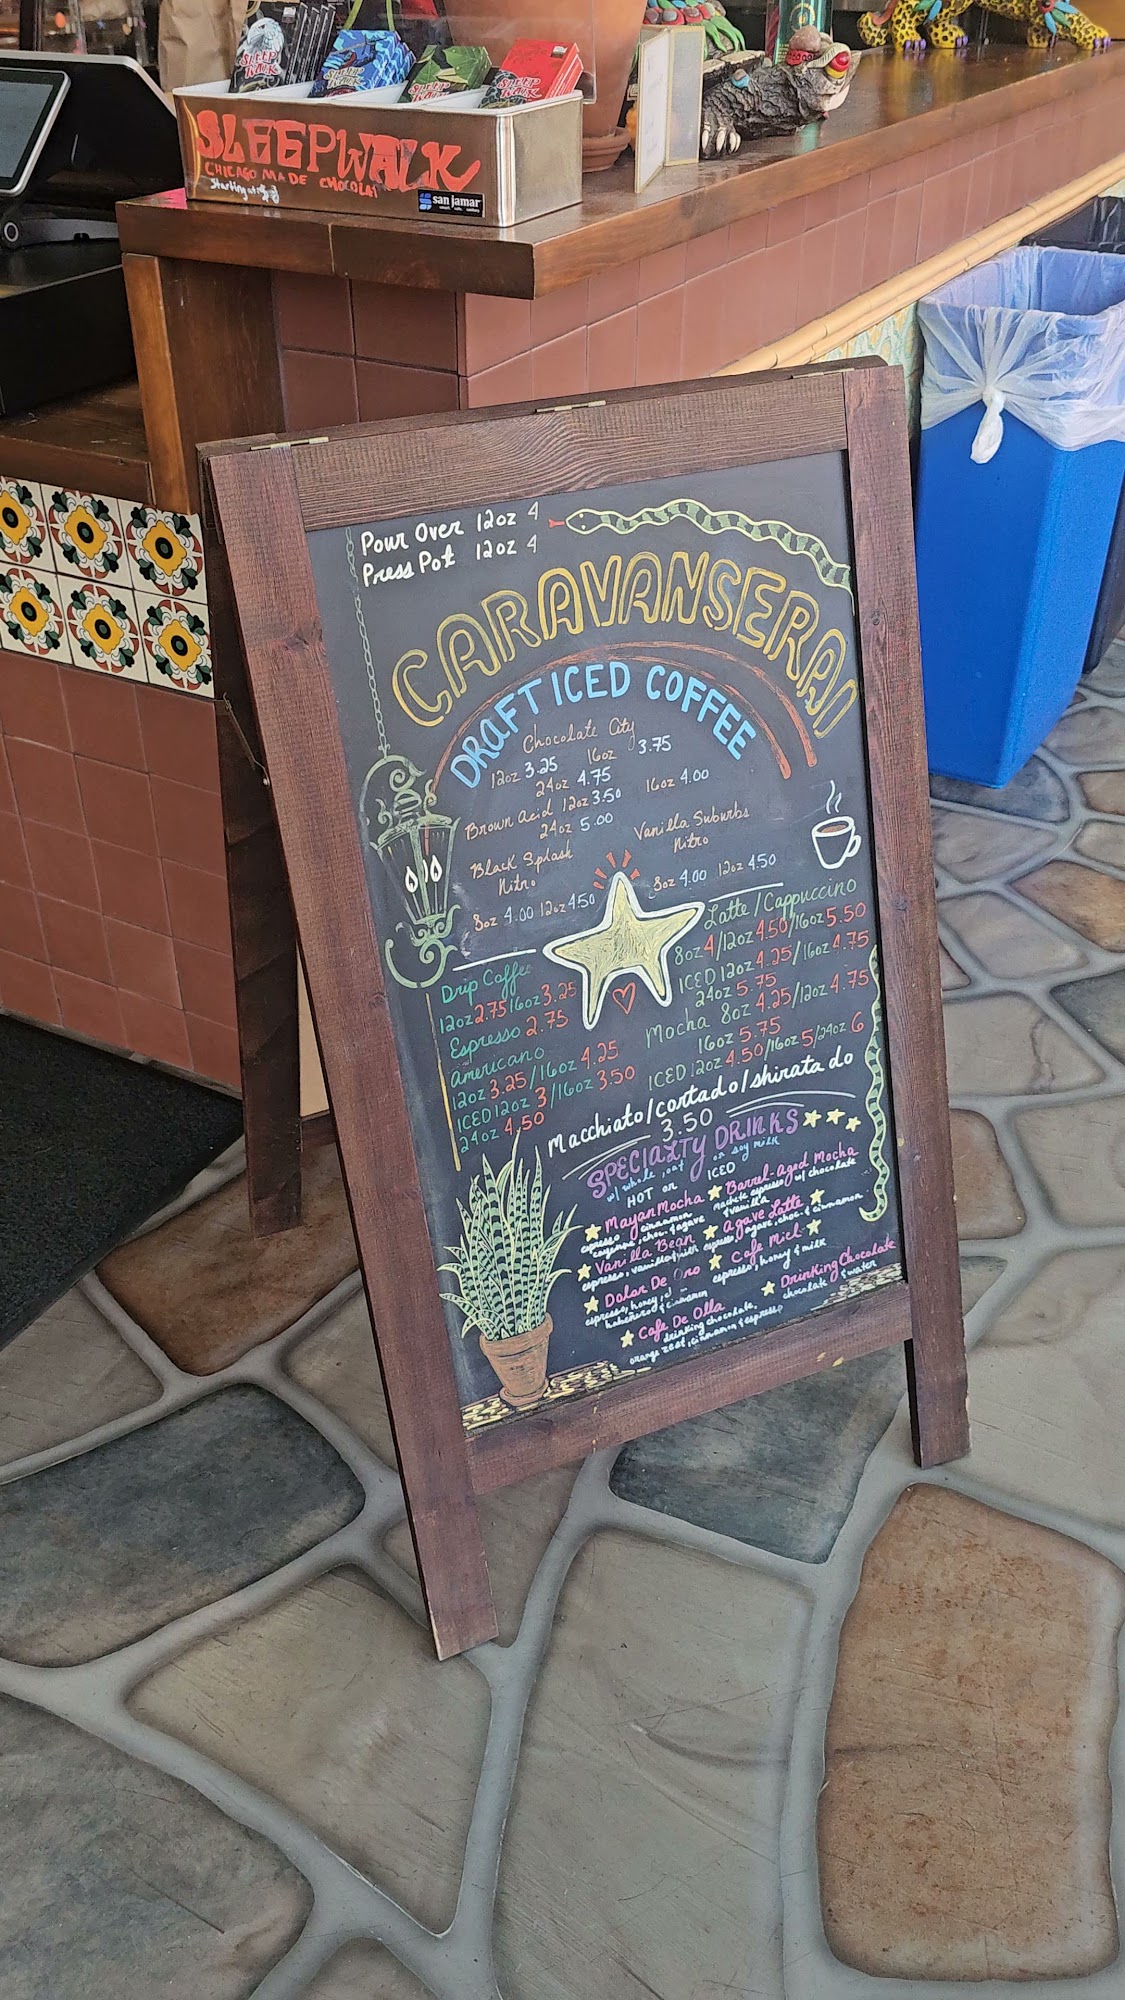 SLEEP WALK
SLEEP WALK
SLEEP WALK
SLEEP WALK
SLEEPWALK
CHICAGO MADE CHOCOLAT
Starting at
san jamar
Pour Over 12oz 4
Press Pot 12oz 4
CARAVANSERAI
DRAFT ICED COFFEE
Chocolate City
12oz 3.25 16oz 3.75
24oz 4.75
Brown Acid 12oz 3.50 16oz 4.00
24oz 5.00
Black Splash
Nitro
8oz 4.00 12oz 4.50
Vanilla Suburbs
Nitro
8oz 4.00 12oz 4.50
Drip Coffee
12oz 2.75 16oz 3.25
Espresso 2.75
Americano
12oz 3.25/16oz 4.25
ICED 12oz 3/16oz 3.50
24oz 4.50
Latte/Cappuccino
8oz 4/12oz 4.50/16oz 5.50
ICED 12oz 4.25/16oz 4.75
24oz 5.75
Mocha 8oz 4.25/12oz 4.75
16oz 5.75
ICED 12oz 4.50/16oz 5/24oz 6
Macchiato/cortado/shiratado
3.50
SPECIALTY DRINKS
w/ whole, oat or soy milk
HOT or ICED
Mayan Mocha
espresso cinnamon
cayenne, choc. & agave
Barrel-aged Mocha
espresso w/ chocolate
& vanilla
Vanilla Bean
espresso, vanilla & milk
Agave Latte
espresso, agave, choc. & cinnamon
Dolor De Oro
espresso, honey,
habeñero & cinnamon
Cafe Miel
espresso, honey & milk
Cafe De Olla
drinking chocolate,
orange zest, cinnamon & espresso
Drinking Chocolate
chocolate & water